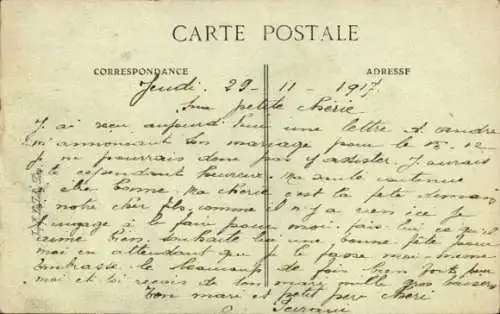 CARTE POSTALE
CORRESPONDANCE
ADRESSE
Jeudi. 29 - 11 - 1917
petite chérie
J'ai reçu aujourd'hui une lettre
m'annonçant son mariage pour le 15-12
Je ne pourrais donc pas y assister. J'aurais
été cependant heureux. Ma santé continue
être bonne. Ma chérie c'est la fête demain
notre cher fils comme il n'y a rien ice je
t'engage à le faire pour moi. fais lui ce qu'il
aime bien souhaite lui une bonne fête pour
moi en attendant que je le fasse moi-même
Embrasse le beaucoup de fois bien fort pour
moi et toi reçois de ton mari mille gros baisers
Ton mari et petit père chéri